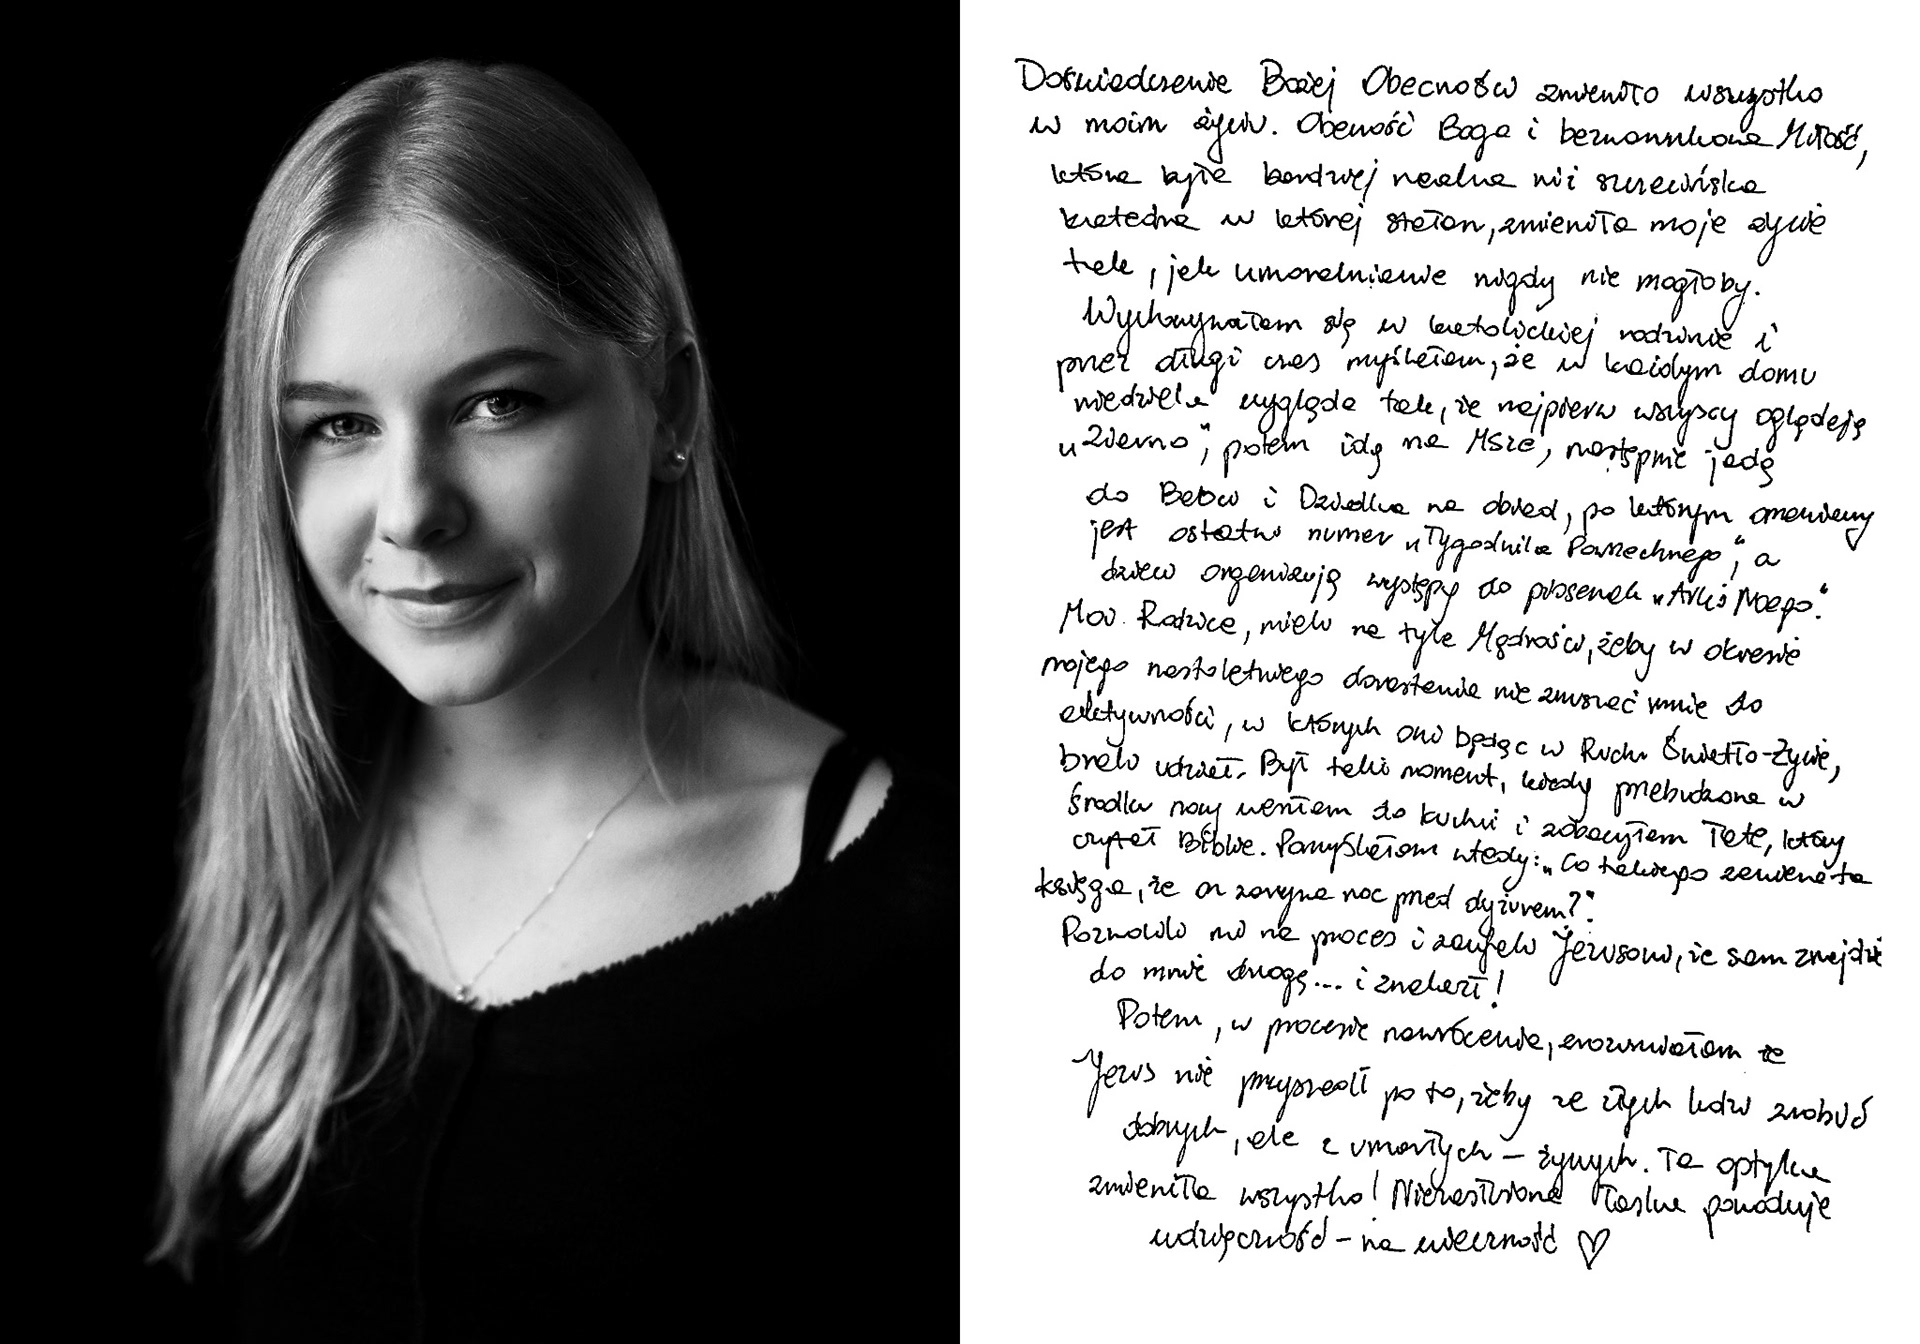 Doświadczenie Bożej Obecności zmieniło wszystko
w moim życiu. Obecność Boga i bezwarunkowa Miłość,
która była bardziej realna niż szczecińska
katedra w której stałam, zmieniła moje życie
tak, jak umoralnienie nigdy nie mogłoby.
Wychowywałam się w katolickiej rodzinie i
przez długi czas myślałam, że w każdym domu
niedziela wygląda tak, że najpierw wszyscy oglądają
„Ziarno", potem idą na Mszę, następnie jadą
do Babci i Dziadka na obiad, po którym omawiany
jest ostatni numer „Tygodnika Powszechnego", a
dzieci organizują występy do piosenek „Arki Noego".
Moi Rodzice, mieli na tyle Mądrości, żeby w okresie
mojego nastoletniego dorastania nie zmuszać mnie do
aktywności, w których oni będąc w Ruchu Światło-Życie,
brali udział. Był taki moment, kiedy przebudzona w
środku nocy weszłam do kuchni i zobaczyłam Tatę, który
czytał Biblię. Pomyślałam wtedy: „Co takiego zawiera ta
księga, że on zarywa noc przed dyżurem?".
Pozwolili mi na proces i zaufali Jezusowi, że sam znajdzie
do mnie drogę... i znalazł!
Potem, w procesie nawrócenia, zrozumiałam że
Jezus nie przyszedł po to, żeby ze złych ludzi zrobić
dobrych, ale z umarłych – żywych. Ta optyka
zmieniła wszystko! Niezasłużona Łaska powoduje
wdzięczność – na wieczność ♡